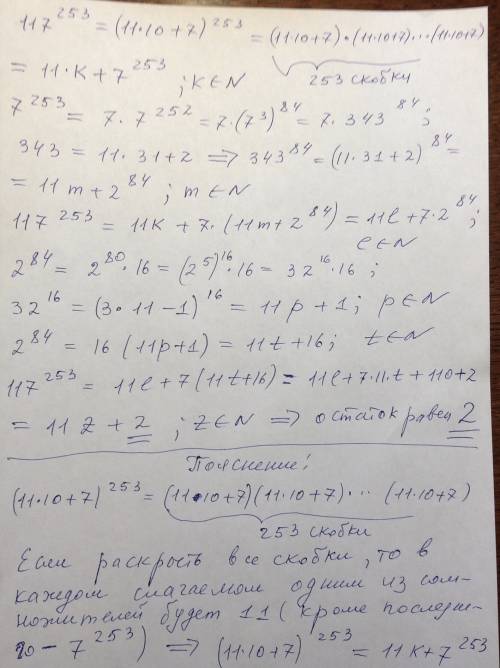 117²⁵³ = (11·10+7)²⁵³ = (11·10+7)·(11·10+7)…(11·10+7)
253 скобки
= 11·k + 7²⁵³ ; k∈N
7²⁵³ = 7·7²⁵² = 7·(7³)⁸⁴ = 7·343⁸⁴ ;
343 = 11·31+2 ⇒ 343⁸⁴ = (11·31+2)⁸⁴ =
= 11m + 2⁸⁴ ; m∈N
117²⁵³ = 11k + 7·(11m + 2⁸⁴) = 11ℓ + 7·2⁸⁴ ;
ℓ∈N
2⁸⁴ = 2⁸⁰·16 = (2⁵)¹⁶·16 = 32¹⁶·16 ;
32¹⁶ = (3·11-1)¹⁶ = 11p + 1 ; p∈N
2⁸⁴ = 16(11p+1) = 11t+16 ; t∈N
117²⁵³ = 11ℓ + 7(11t+16) = 11ℓ+7·11·t+110+2
= 11z + 2 ; z∈N ⇒ остаток равен 2
Пояснение!
(11·10+7)²⁵³ = (11·10+7)(11·10+7)… (11·10+7)
253 скобки
Если раскрость все скобки, то в
каждом слагаемом одним из сом-
ножителей будет 11 (кроме последне-
го - 7²⁵³) ⇒ (11·10+7)²⁵³ = 11k+7²⁵³